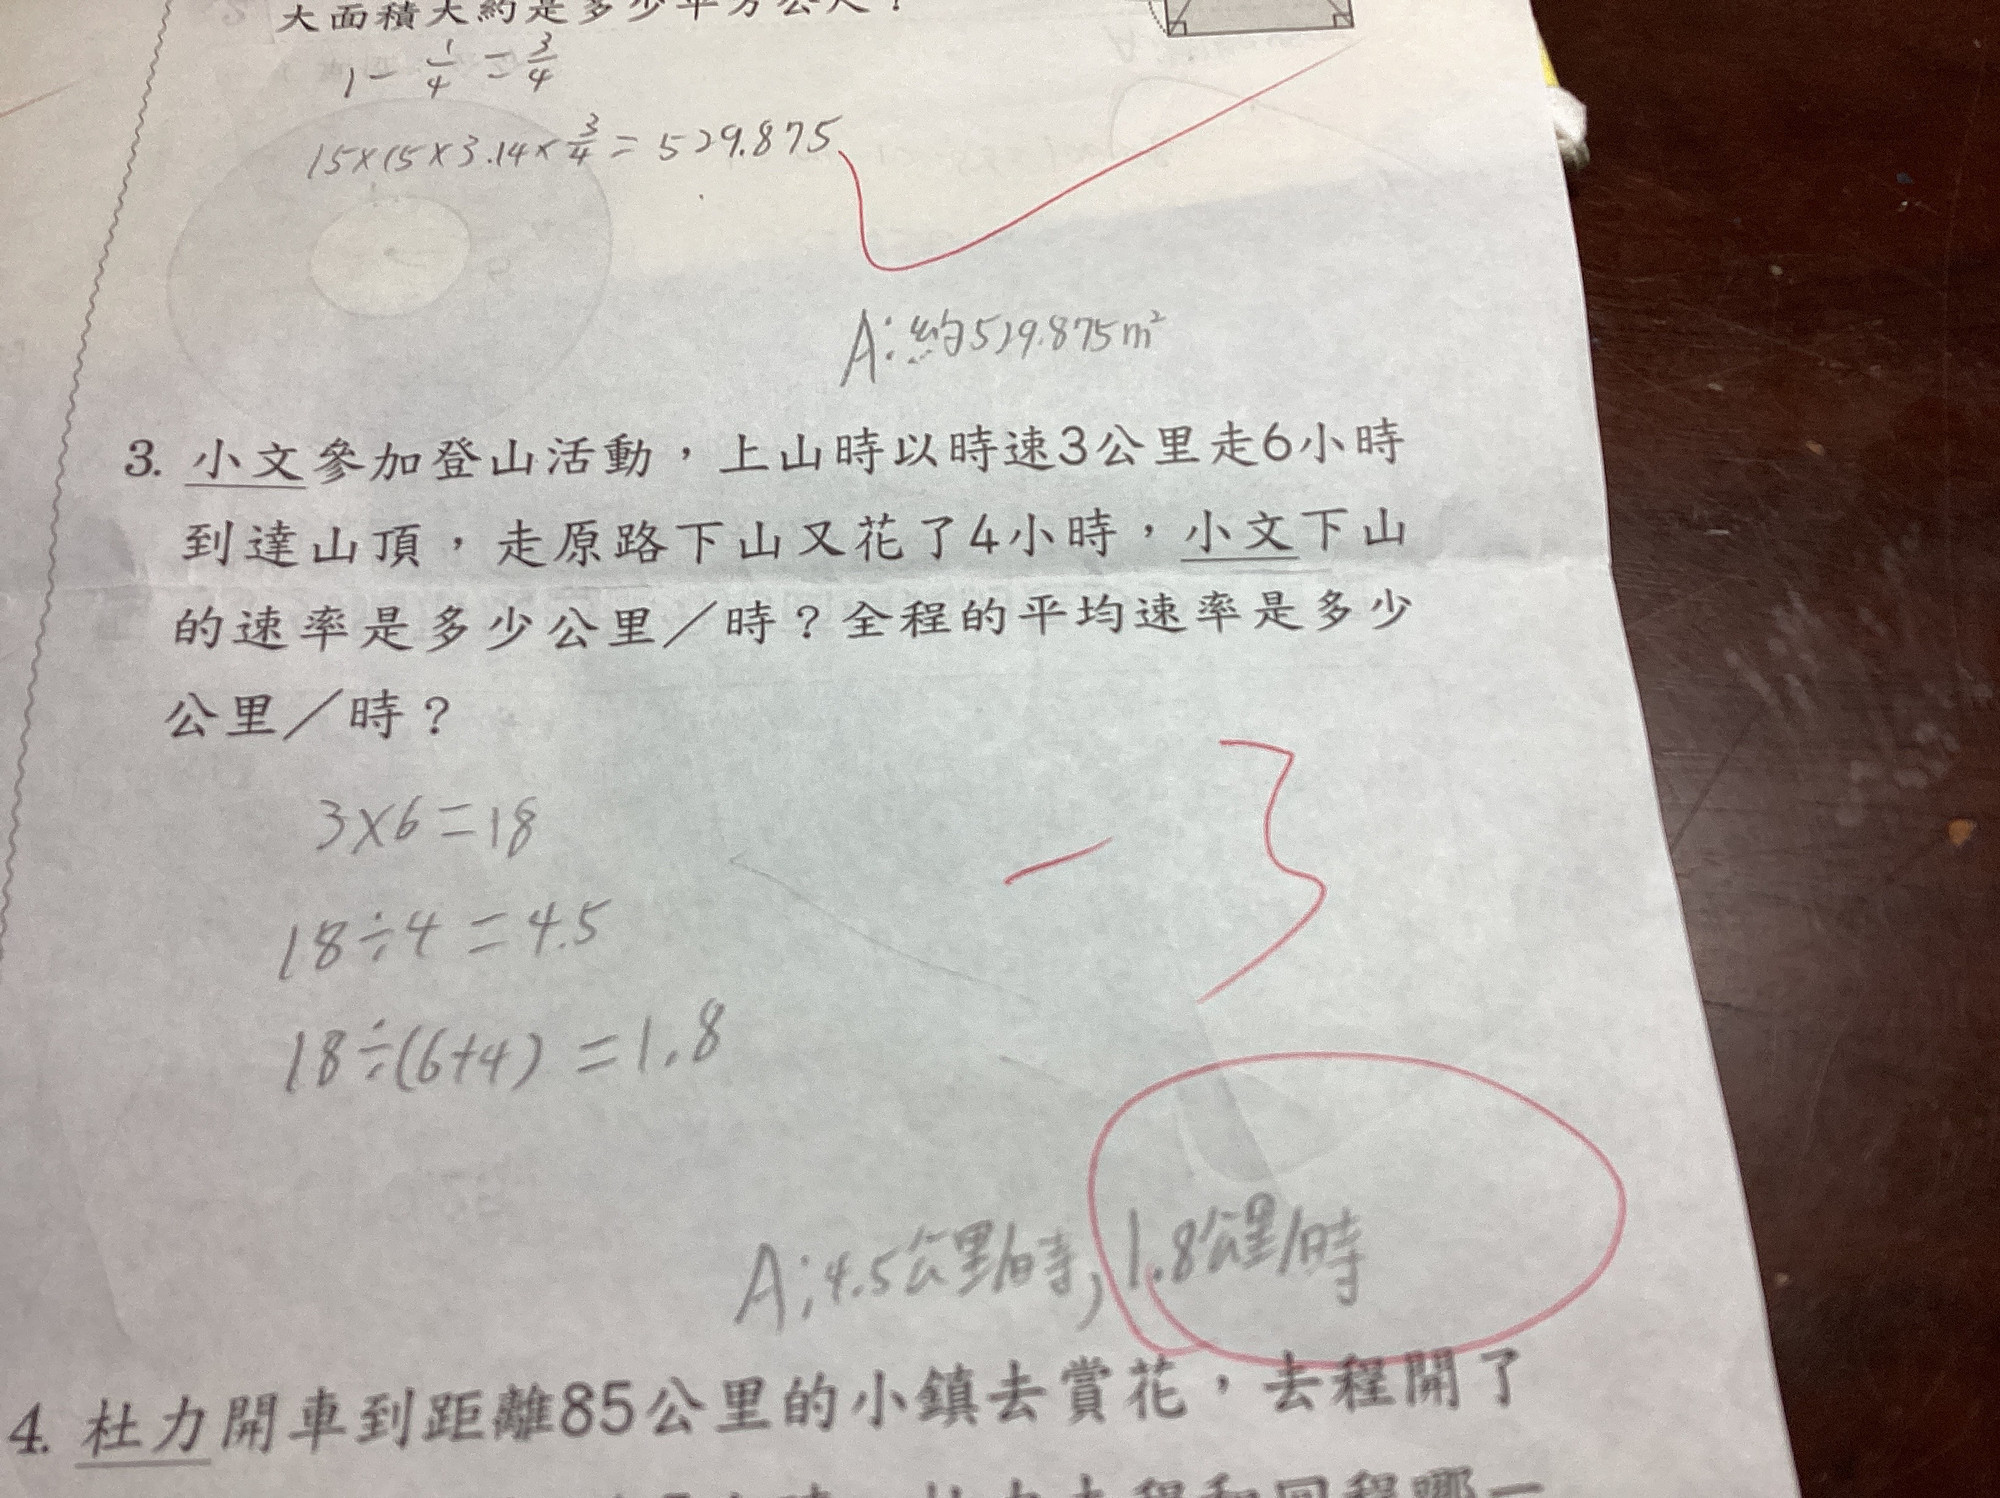 大面積大約是多少平方公尺？
1 - 1/4 = 3/4
15×15×3.14×3/4 = 529.875
A：約529.875m²
3. 小文參加登山活動，上山時以時速3公里走6小時
到達山頂，走原路下山又花了4小時，小文下山
的速率是多少公里／時？全程的平均速率是多少
公里／時？
3×6=18
-3
18÷4=4.5
18÷(6+4)=1.8
A：4.5公里/時, 1.8公里/時
4. 杜力開車到距離85公里的小鎮去賞花，去程開了